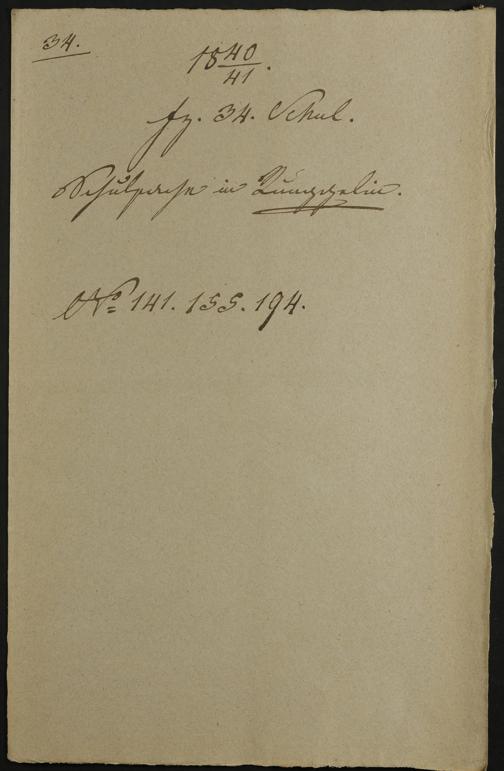 34.
18 40/41.
fz. 34. Schul.
Schulsache in Runggelin.
No 141. 155. 194.